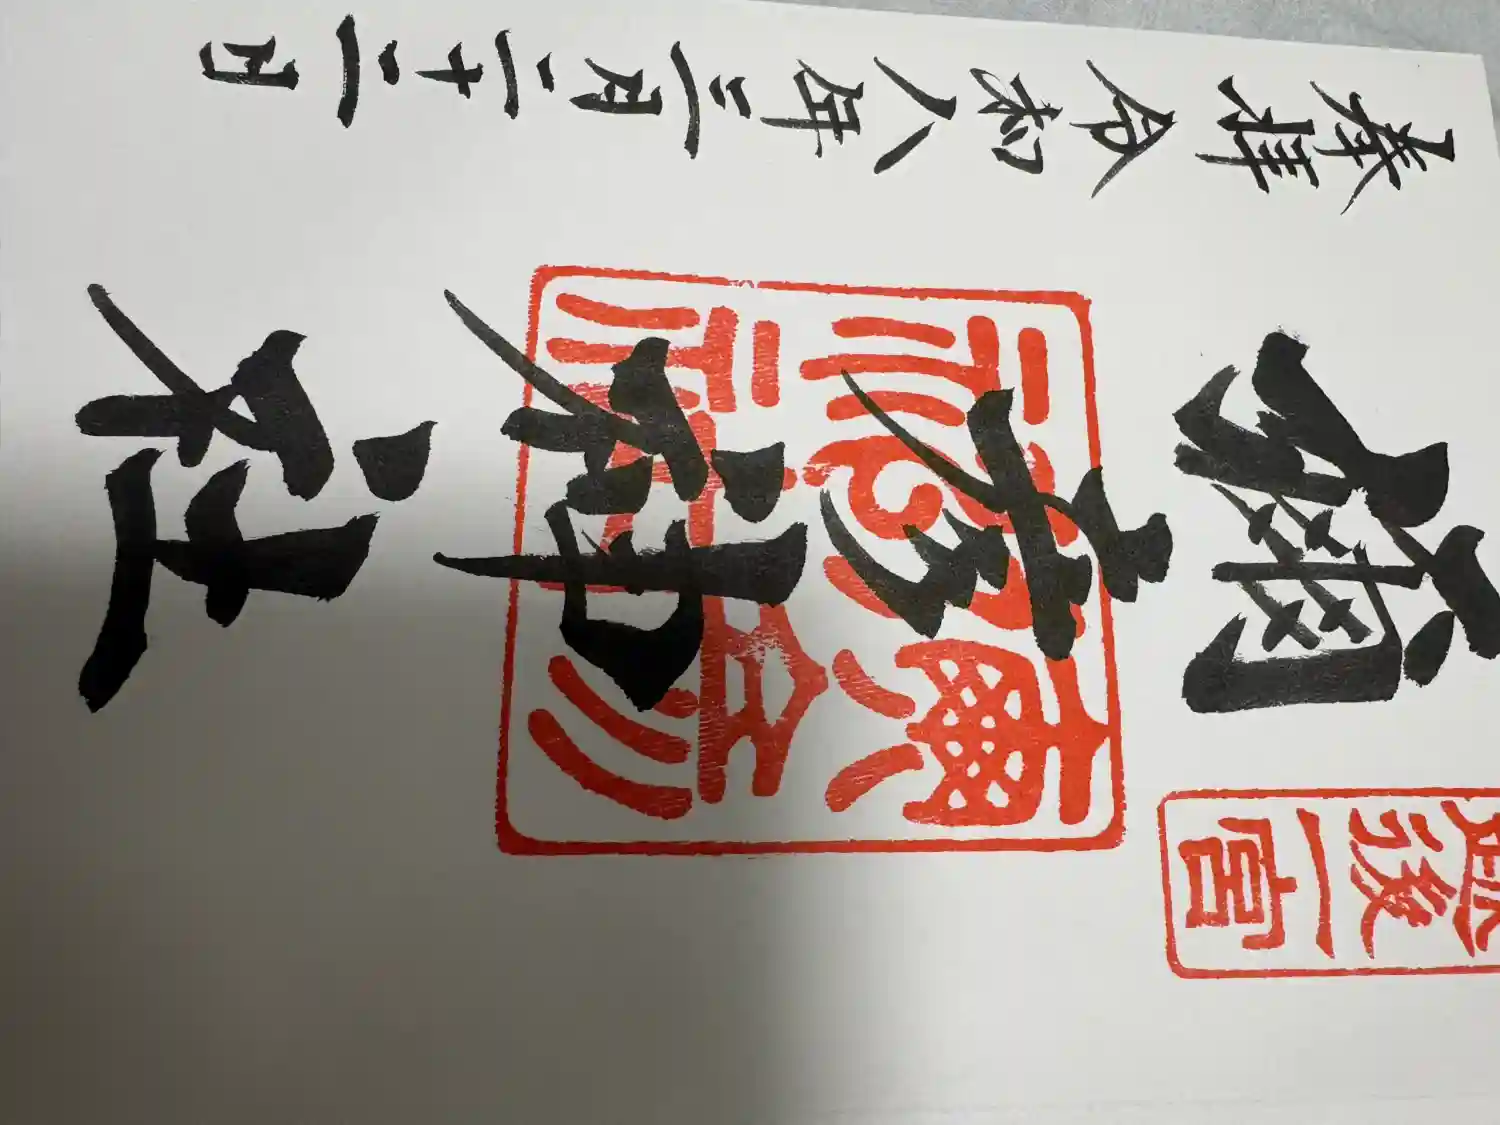 越後一宮
彌彦神社
奉拝 令和八年三月二十二日